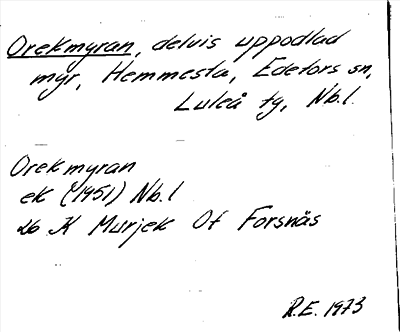 Orekmyran, delvis uppodlad
myr, Hemmesta, Edefors sn,
Luleå tg, Nb.l.
Orekmyran
ek (1951) Nb.l
26 K Murjek Of Forsnäs
R.E. 1973